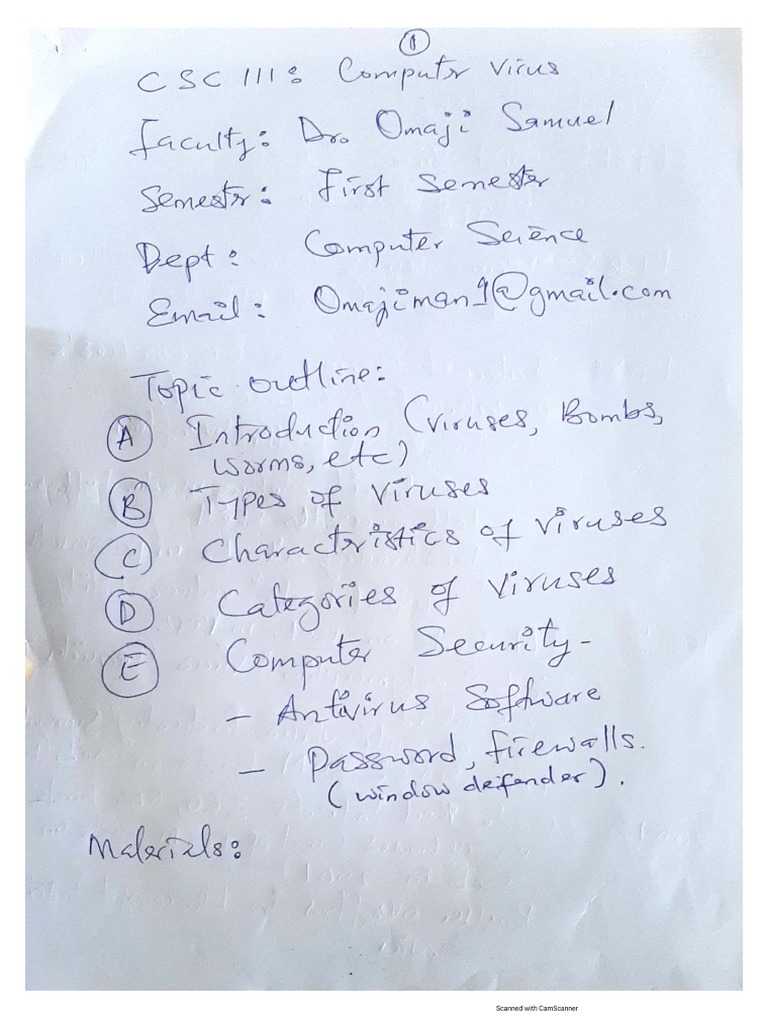 ①
CSC 111: Computer Virus
Faculty: Dr. Omaji Samuel
Semester: First Semester
Dept: Computer Science
Email: Omajiman1@gmail.com
Topic outline:
Ⓐ Introduction (Viruses, Bombs,
worms, etc)
Ⓑ Types of Viruses
Ⓒ Characteristics of Viruses
Ⓓ Categories of Viruses
Ⓔ Computer Security-
- Antivirus Software
- Password, firewalls.
(window deifender).
Materials:
Scanned with CamScanner